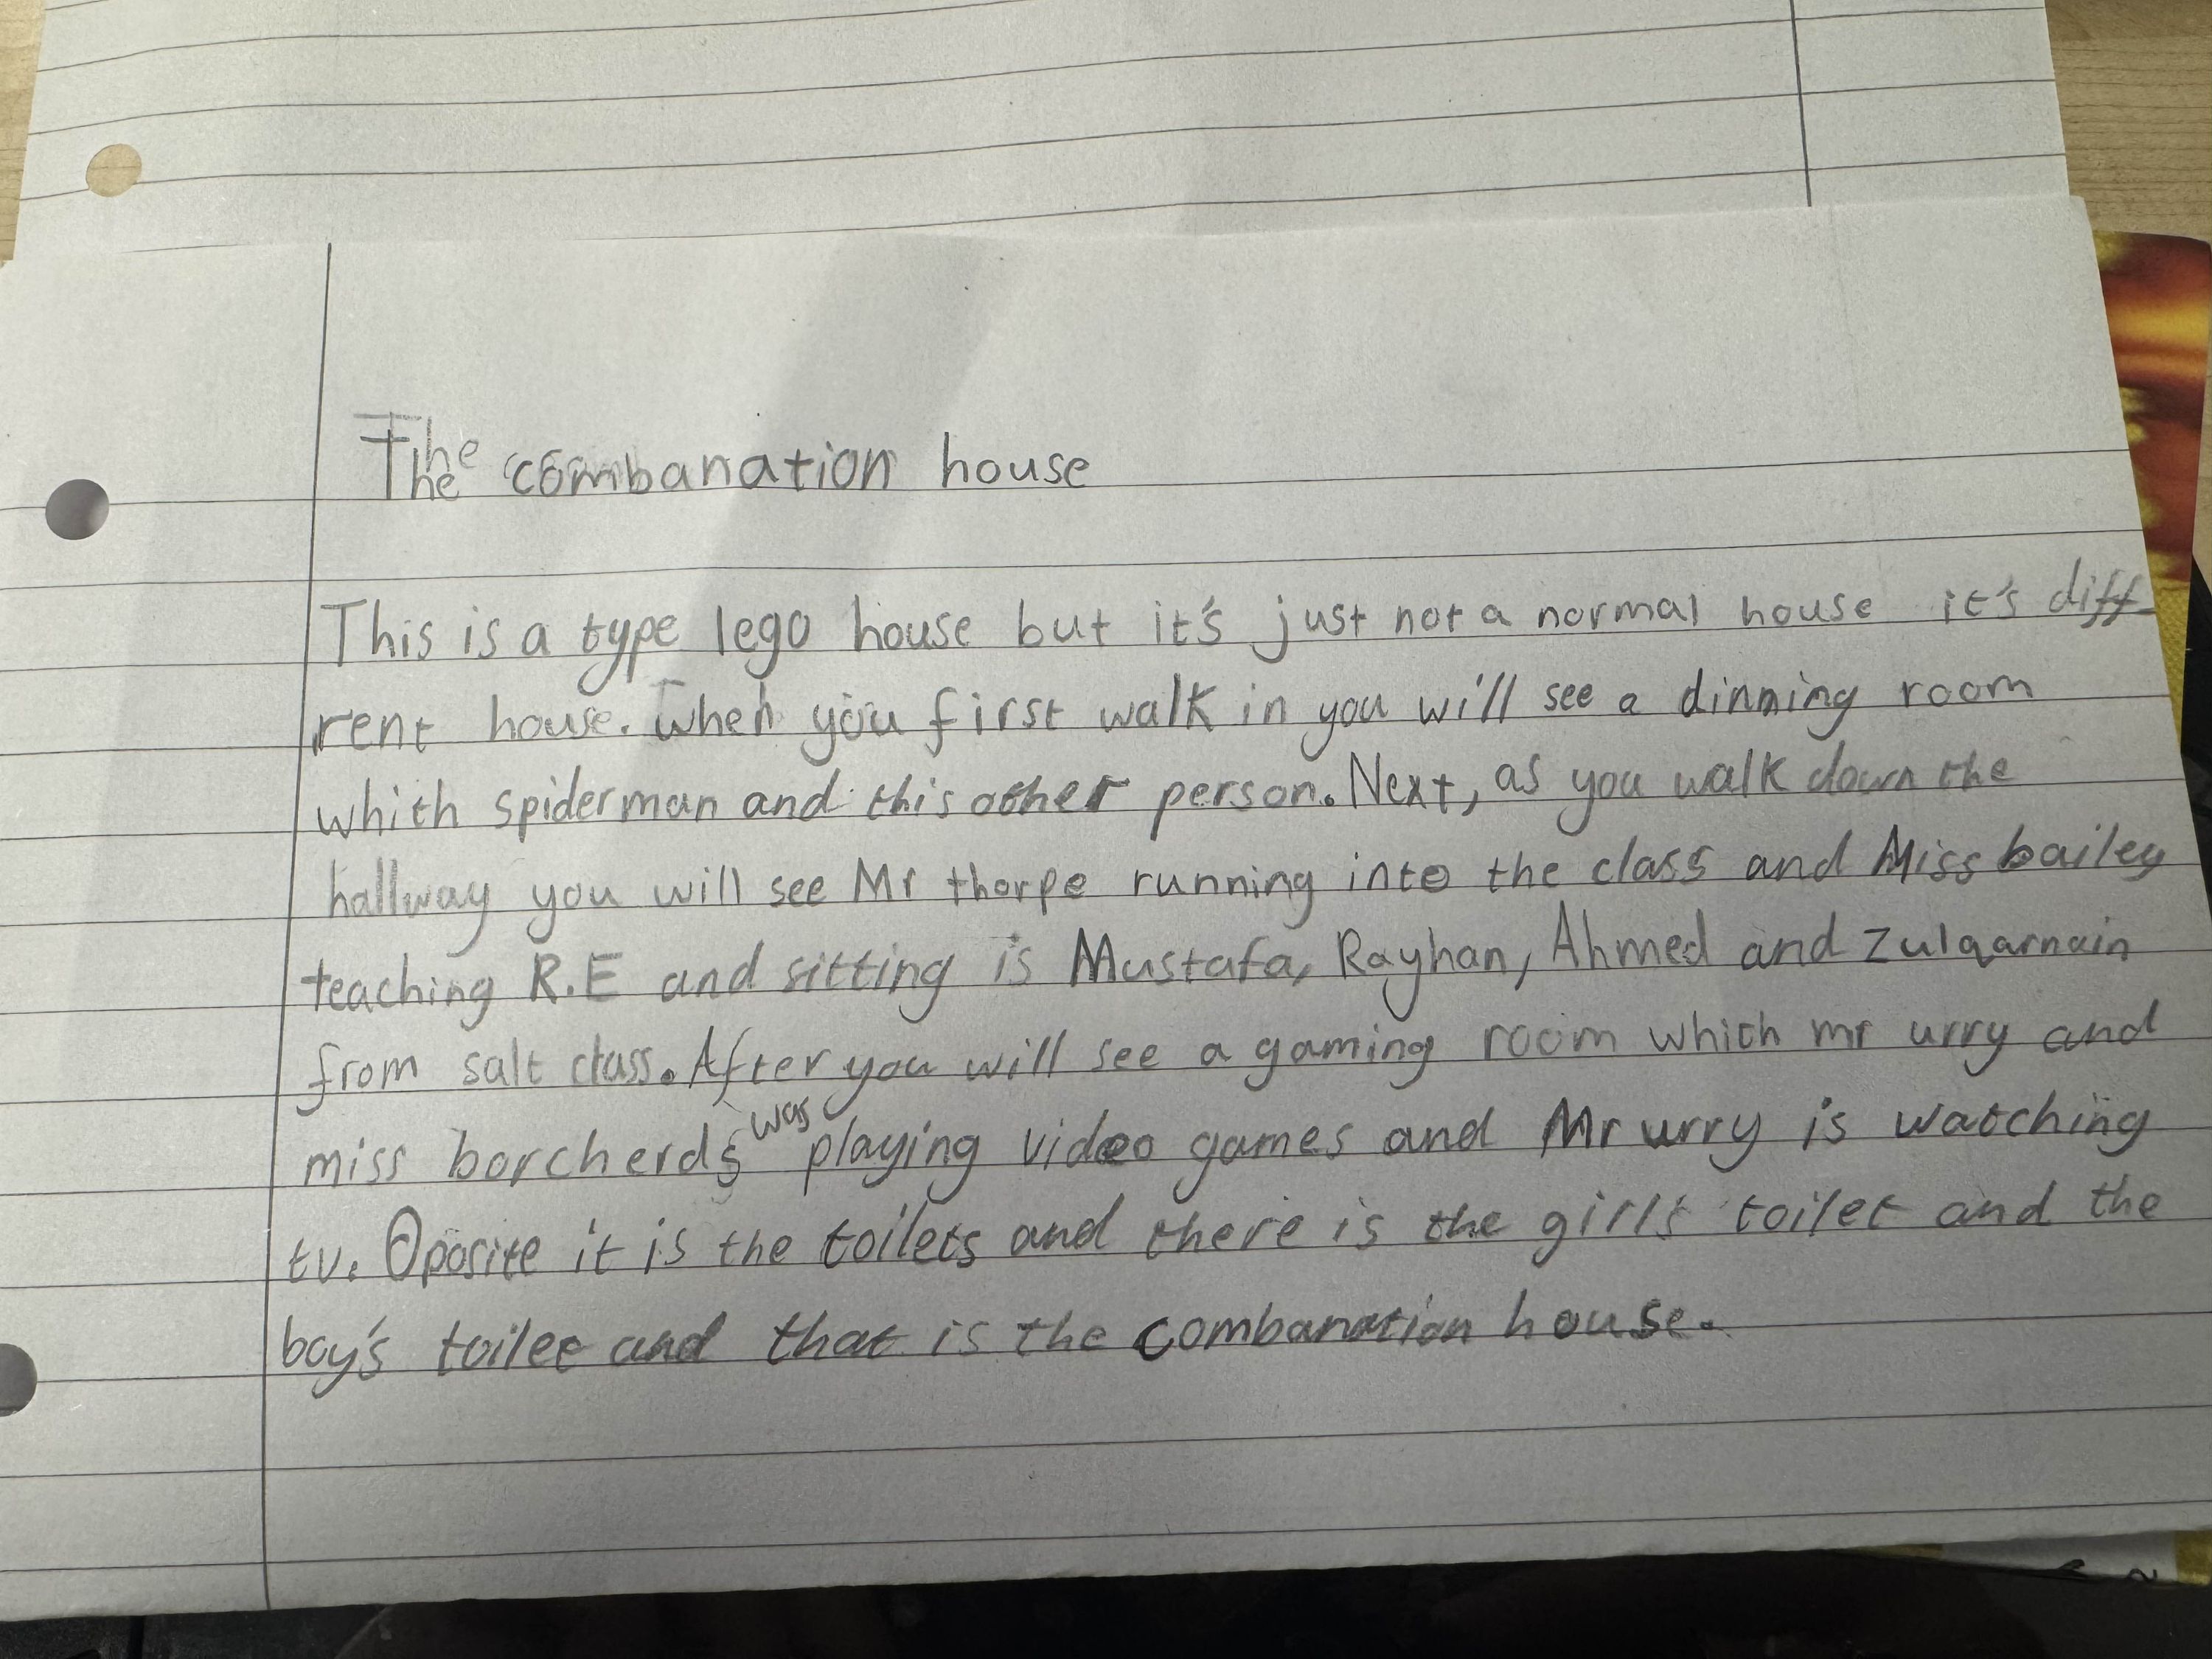 The combanation house
This is a type lego house but it's just not a normal house it's diff
rent house. When you first walk in you will see a dinning room
which spiderman and this other person. Next, as you walk down the
hallway you will see Mr thorpe running into the class and Miss bailey
teaching R.E and sitting is Mustafa, Rayhan, Ahmed and Zulqarnain
from salt class. After you will see a gaming room which mr urry and
miss borcherds was playing video games and Mr urry is watching
tv. Oposite it is the toilets and there is the girl's toilet and the
boy's toilet and that is the combanation house.